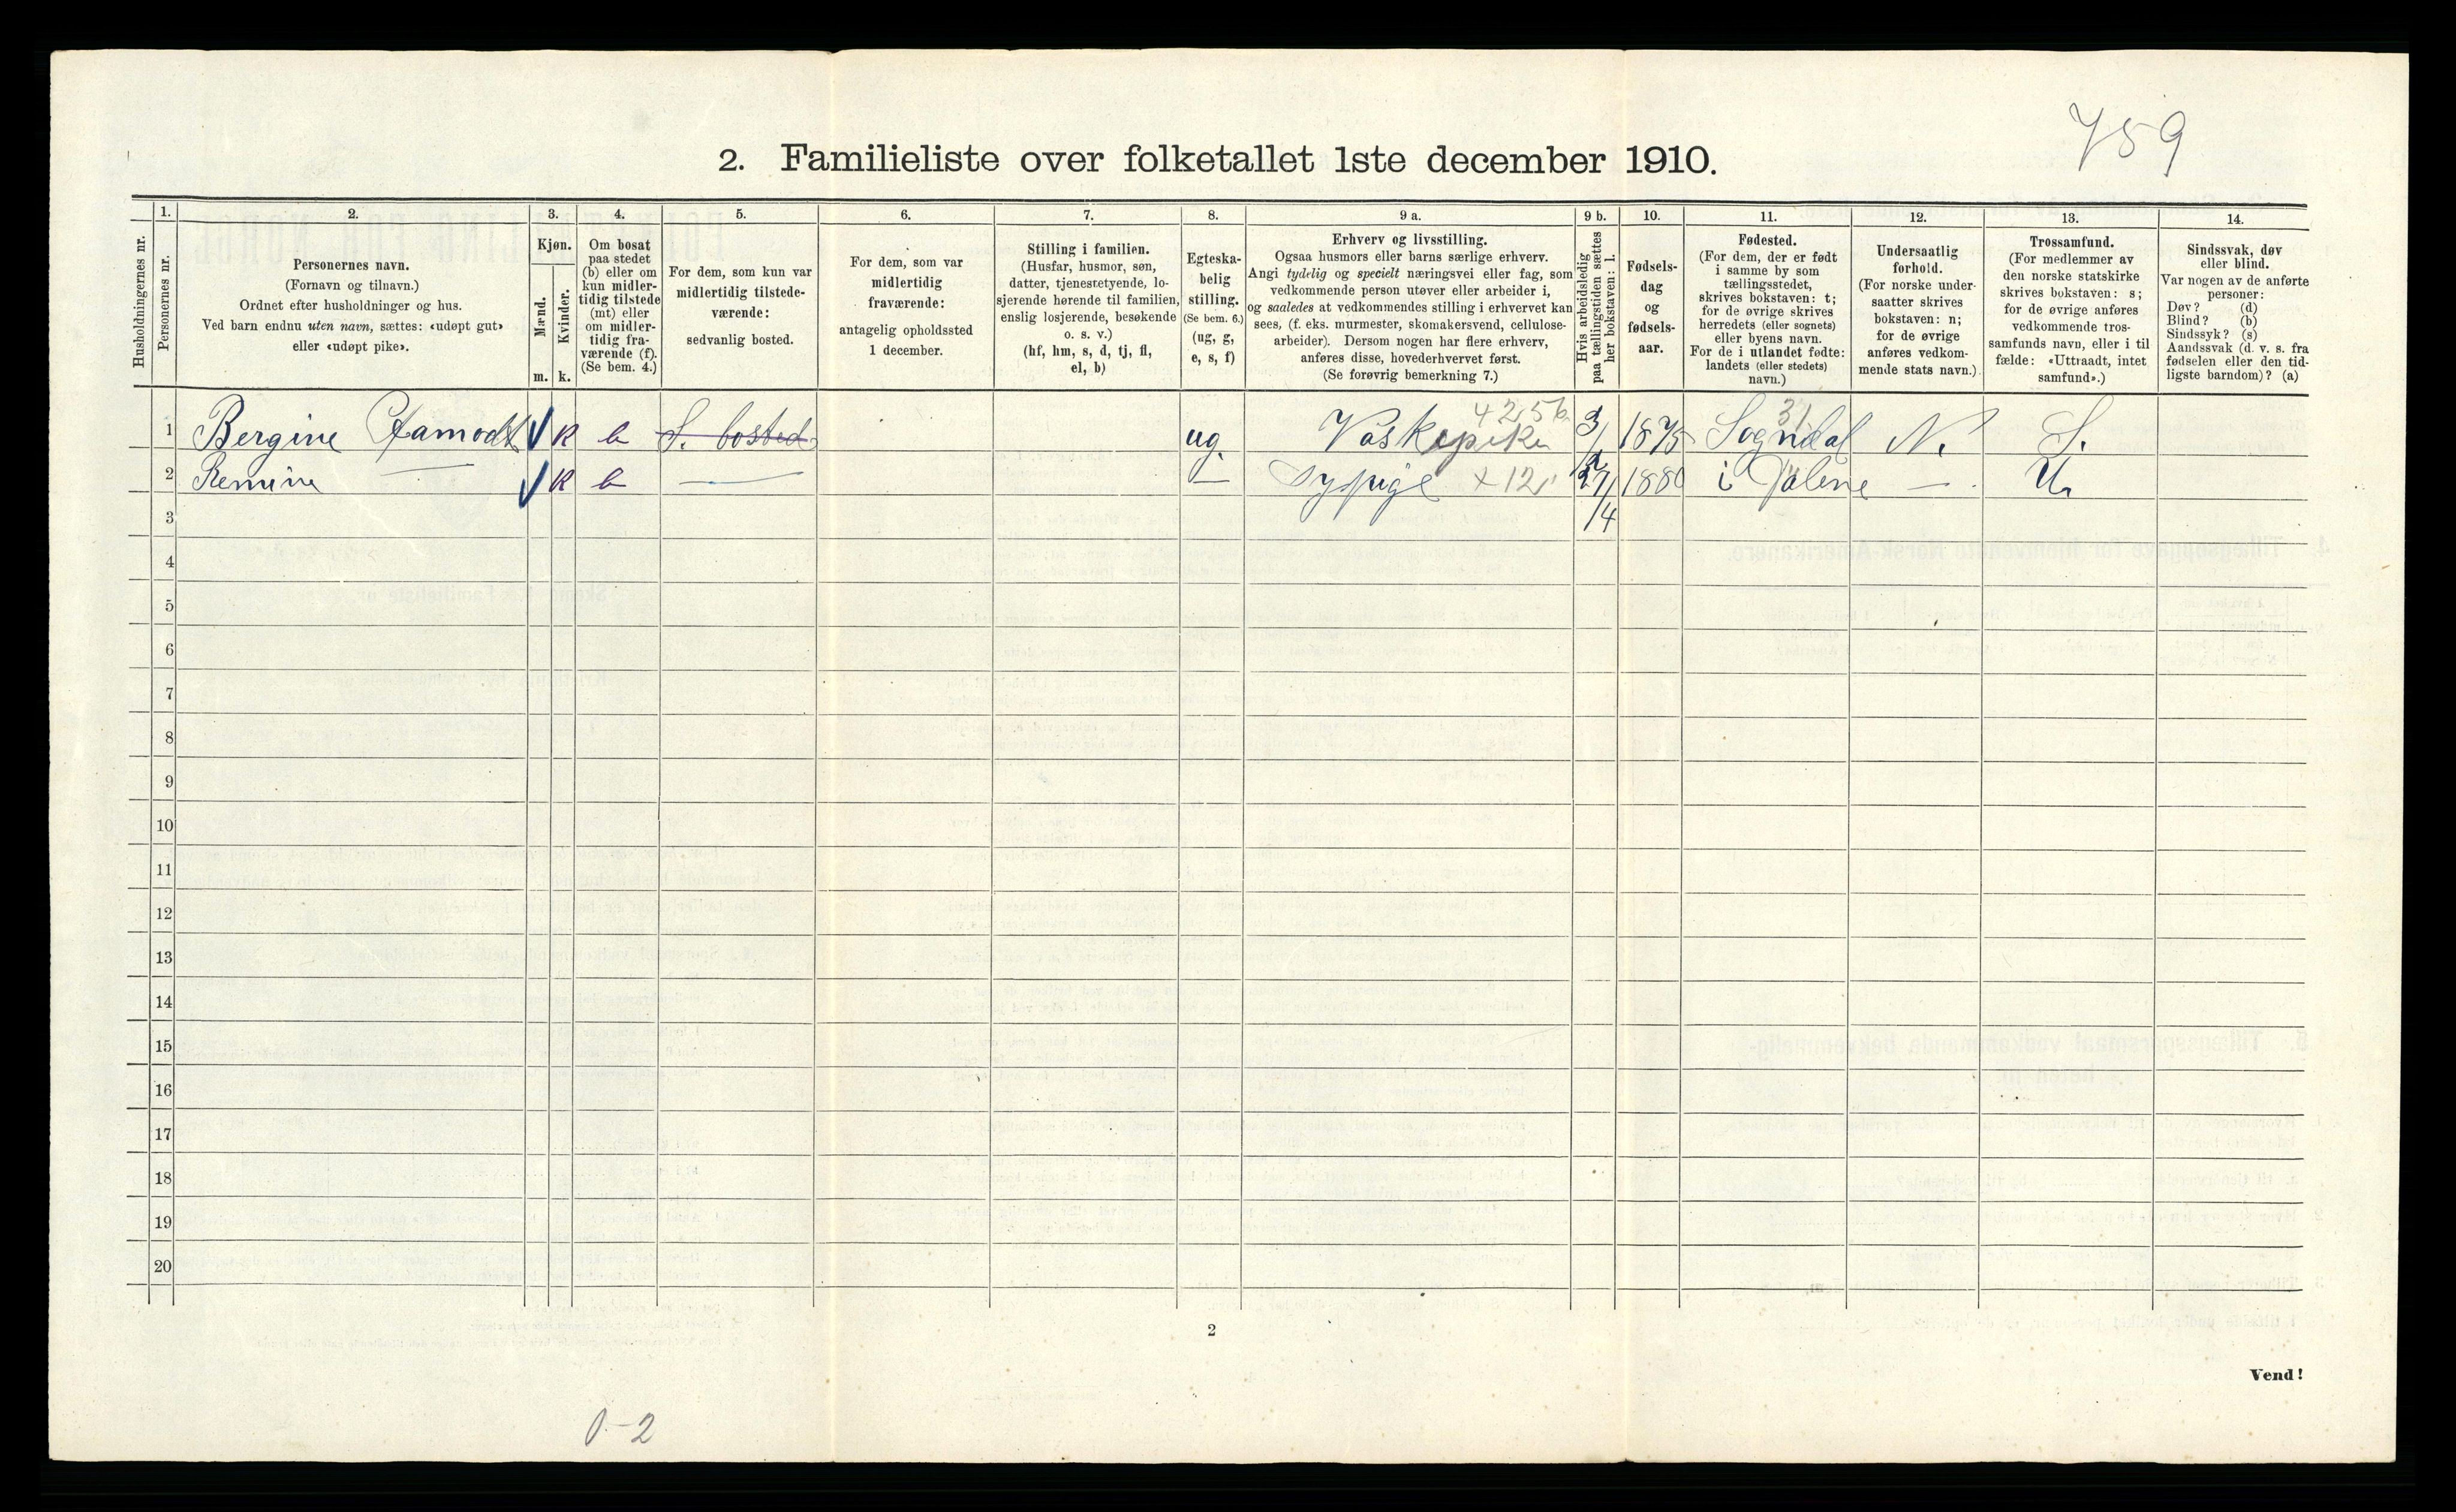 759
2. Familieliste over folketallet 1ste december 1910.
Husholdningernes nr.
1.
Personernes nr.
2.
Personernes navn.
(Fornavn og tilnavn.)
Ordnet efter husholdninger og hus.
Ved barn endnu uten navn, sættes: «udøpt gut»
eller «udøpt pike».
3.
Kjøn.
Mænd.
Kvinder.
m. k.
4.
Om bosat
paa stedet
(b) eller om
kun midler-
tidig tilstede
(mt) eller
om midler-
tidig fra-
værende (f).
(Se bem. 4.)
5.
For dem, som kun var
midlertidig tilstede-
værende:
sedvanlig bosted.
6.
For dem, som var
midlertidig
fraværende:
antagelig opholdssted
1 december.
7.
Stilling i familien.
(Husfar, husmor, søn,
datter, tjenestetyende, lo-
sjerende hørende til familien,
enslig losjerende, besøkende
o. s. v.)
(hf, hm, s, d, tj, fl,
el, b)
8.
Egteska-
belig
stilling.
(Se bem. 6.)
(ug, g,
e, s, f)
9 a.
Erhverv og livsstilling.
Ogsaa husmors eller barns særlige erhverv.
Angi tydelig og specielt næringsvei eller fag, som
vedkommende person utøver eller arbeider i,
og saaledes at vedkommendes stilling i erhvervet kan
sees, (f. eks. murmester, skomakersvend, cellulose-
arbeider). Dersom nogen har flere erhverv,
anføres disse, hovederhvervet først.
(Se forøvrig bemerkning 7.)
9 b.
Hvis arbeidsledig
paa tællingstiden sættes
her bokstaven: l.
10.
Fødsels-
dag
og
fødsels-
aar.
11.
Fødested.
(For dem, der er født
i samme by som
tællingsstedet,
skrives bokstaven: t;
for de øvrige skrives
herredets (eller sognets)
eller byens navn.
For de i utlandet fødte:
landets (eller stedets)
navn.)
12.
Undersaatlig
forhold.
(For norske under-
saatter skrives
bokstaven: n;
for de øvrige
anføres vedkom-
mende stats navn.)
13.
Trossamfund.
(For medlemmer av
den norske statskirke
skrives bokstaven: s;
for de øvrige anføres
vedkommende tros-
samfunds navn, eller i til
fælde: «Uttraadt, intet
samfund».)
14.
Sindssvak, døv
eller blind.
Var nogen av de anførte
personer:
Døv? (d)
Blind? (b)
Sindssyk? (s)
Aandssvak (d. v. s. fra
fødselen eller den tid-
ligste barndom)? (a)
1 Bergine k b S. bosted ug. Vaskepike 3/ 1875 Sogndal N. S.
2 k b — — Sypige + 12 27/ 1880 i — U.
3 /4
4
5
6
7
8
9
10
11
12
13
14
15
16
17
18
19
20
2
Vend!
0-2